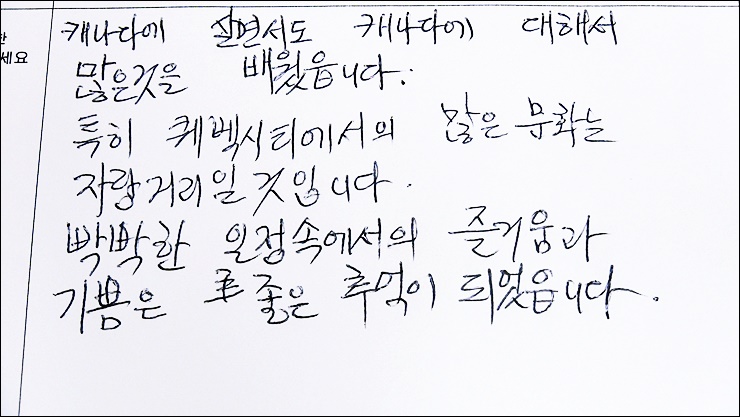 한
세요
캐나다에 살면서도 캐나다에 대해서
많은것을 배웠읍니다.
특히 퀘벡시티에서의 많은 문화는
자랑거리일 것입니다.
빡빡한 일정속에서의 즐거움과
기쁨은 좋은 추억이 되었읍니다.